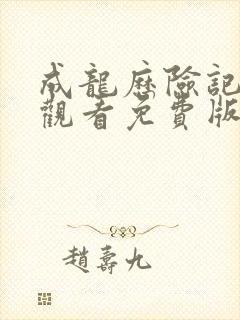 成龍歷險記
觀看免費版
趙壽九